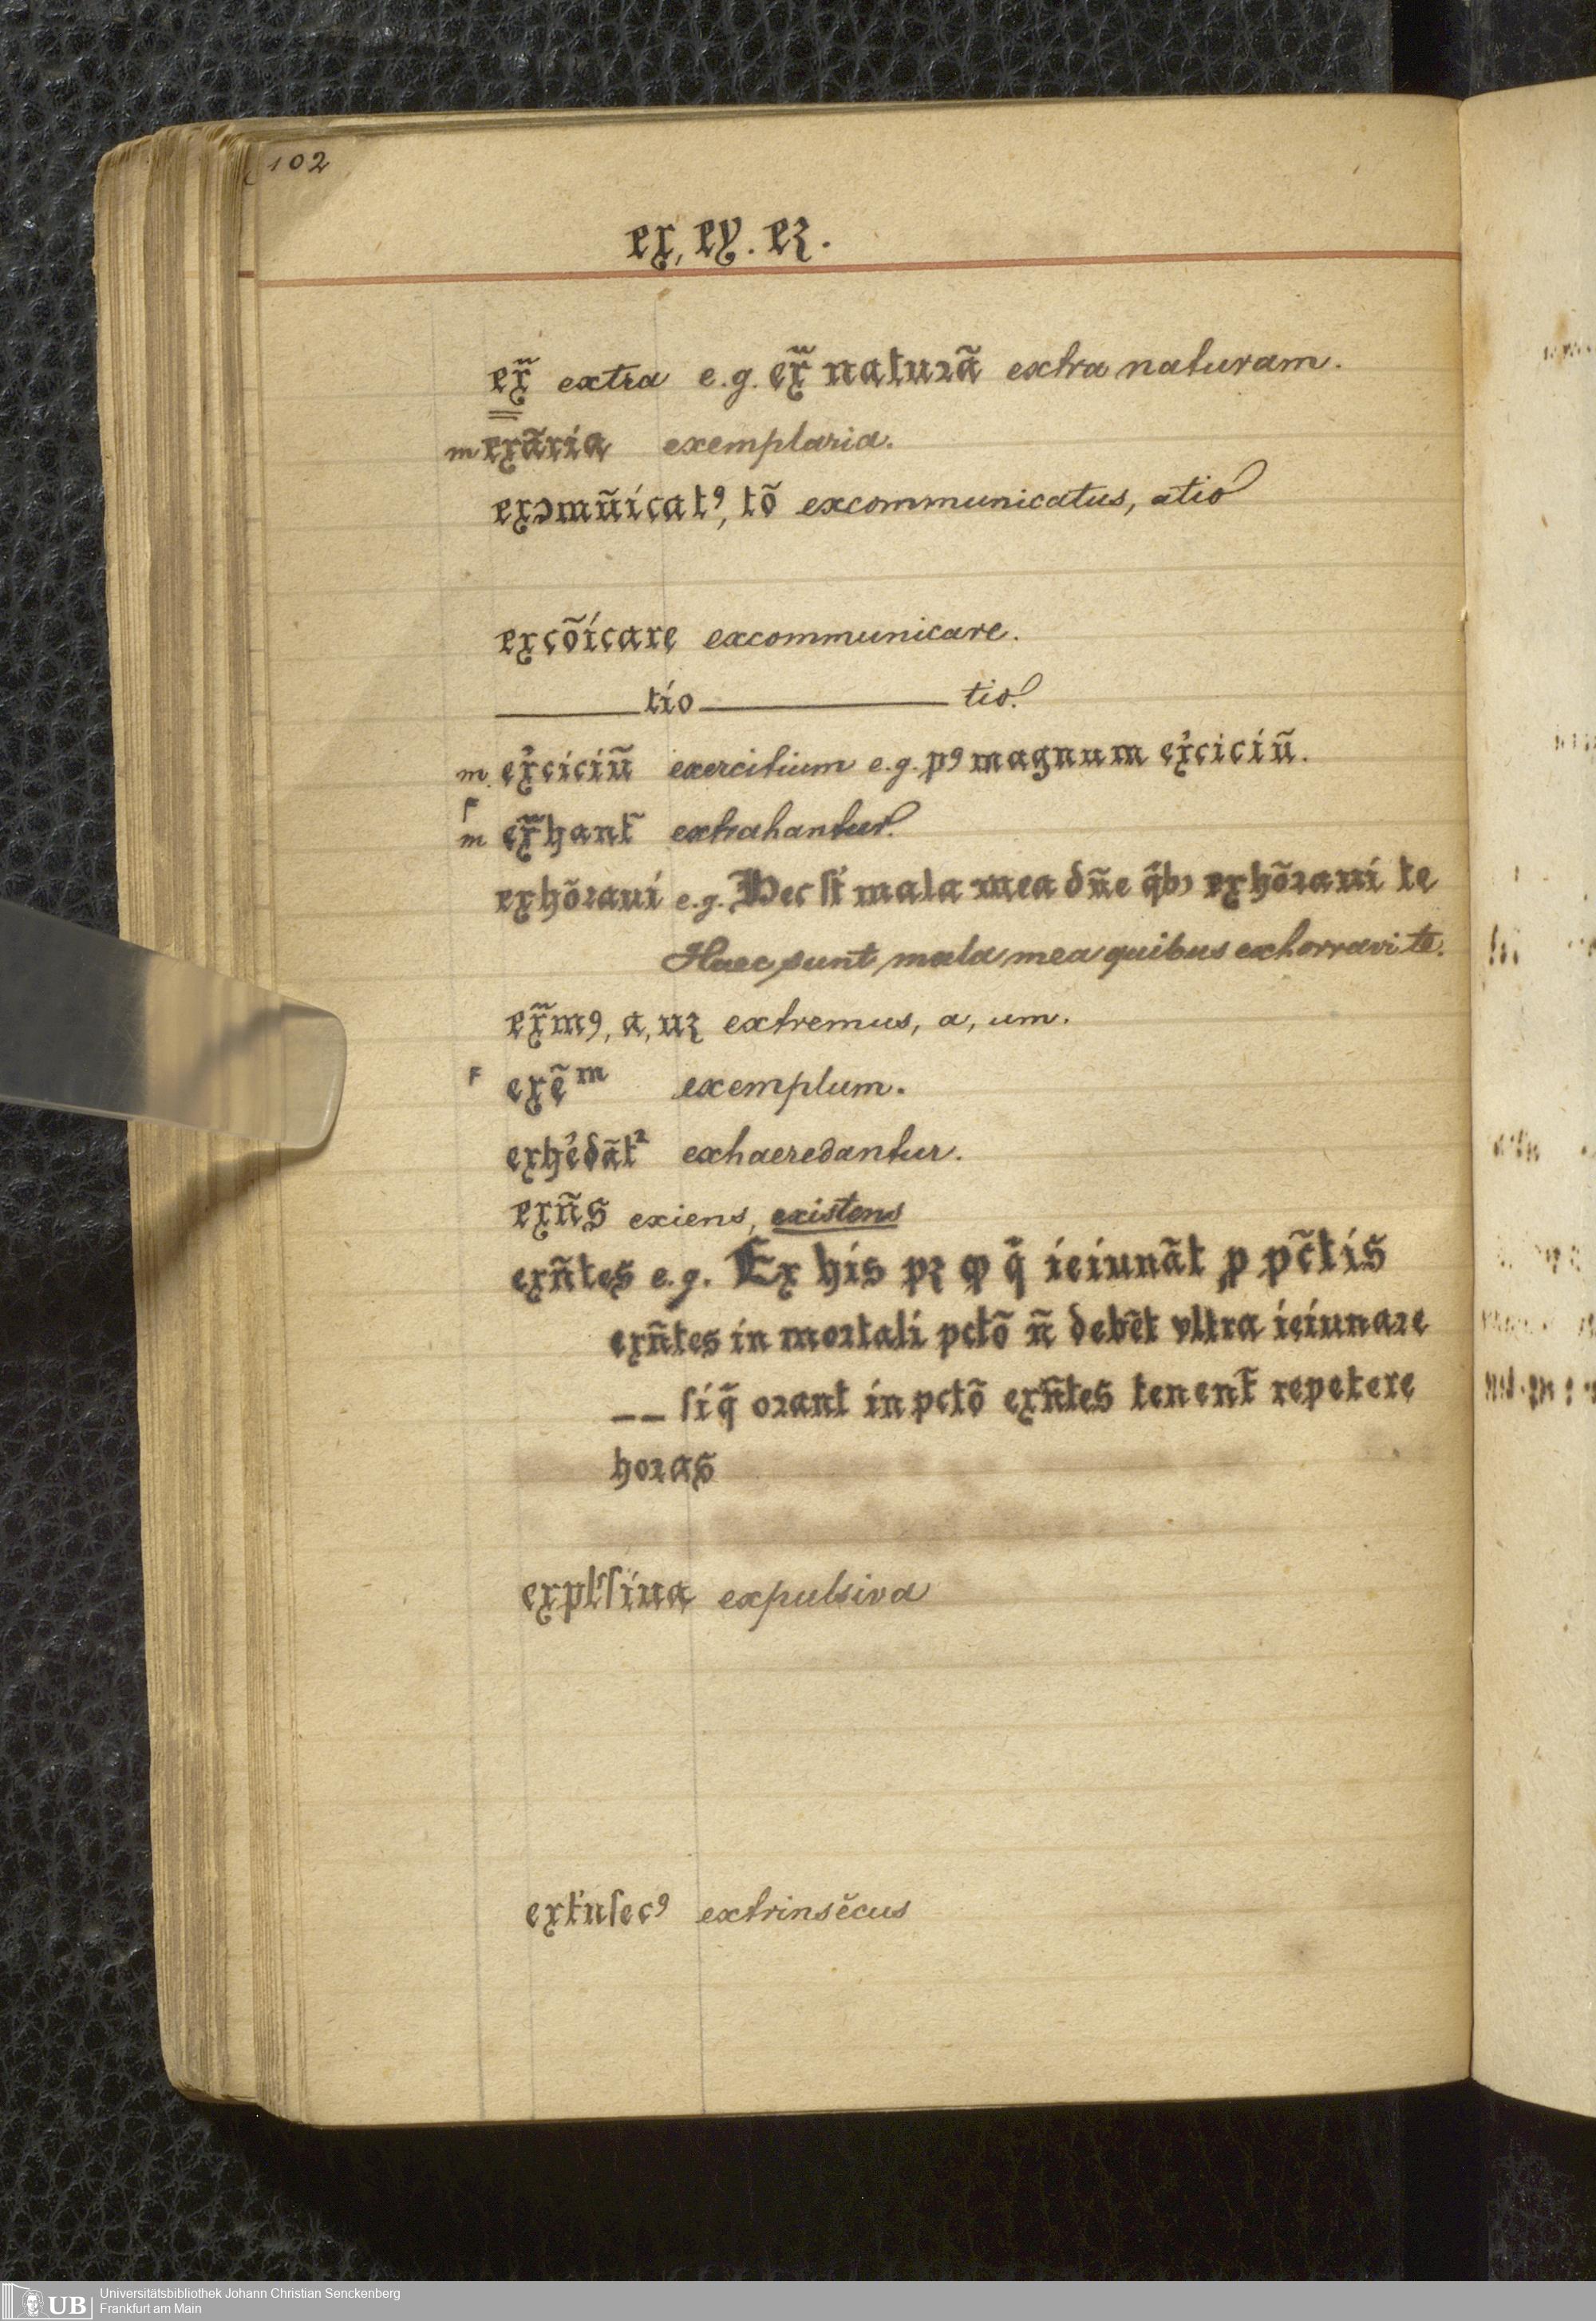 102
ex, ey. eꝫ.
ex̃ extra e.g. ex̃ naturã extra naturam.
m exãria exemplaria.
exɔmũicatꝰ, tõ excommunicatus, atio
excõicare excommunicare.
——— tio ——— tio.
m. ex̉ciciũ exercitium e.g. pꝰ magnum ex̉ciciũ.
F
m ex̃hant̃ extrahantur.
exhõraui e.g. Hec ſt̃ mala mea dñe q̃bꝫ exhõraui te
Haec sunt mala mea quibus exhorravi te.
ex̃mꝰ, a, uꝫ extremus, a, um.
F exẽᵐ exemplum.
exh̉edãt² exhaeredantur.
exñs exiens, existens
exñtes e.g. Ex his pꝫ ꝙ q̃ ieiunãt ꝓ pc̃tis
exñtes in mortali pctõ ñ debẽt vltra ieiunare
_ _ ſi q̃ orant in pctõ exñtes tenent̃ repetere
horas
expl̃ſiua expulsiva
ext̉nſecꝰ extrinsĕcus
Universitätsbibliothek Johann Christian Senckenberg
UB Frankfurt am Main